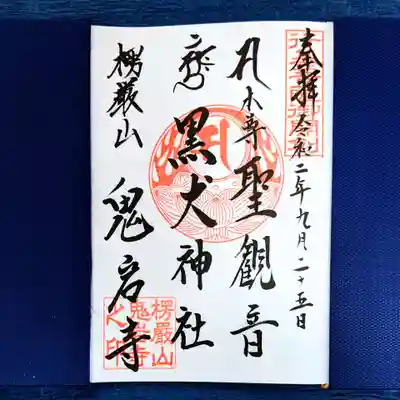 奉拝 令和二年九月二十五日
本尊 聖観音
黒犬神社
楞厳山 鬼岩寺
楞厳山
鬼岩寺
之印